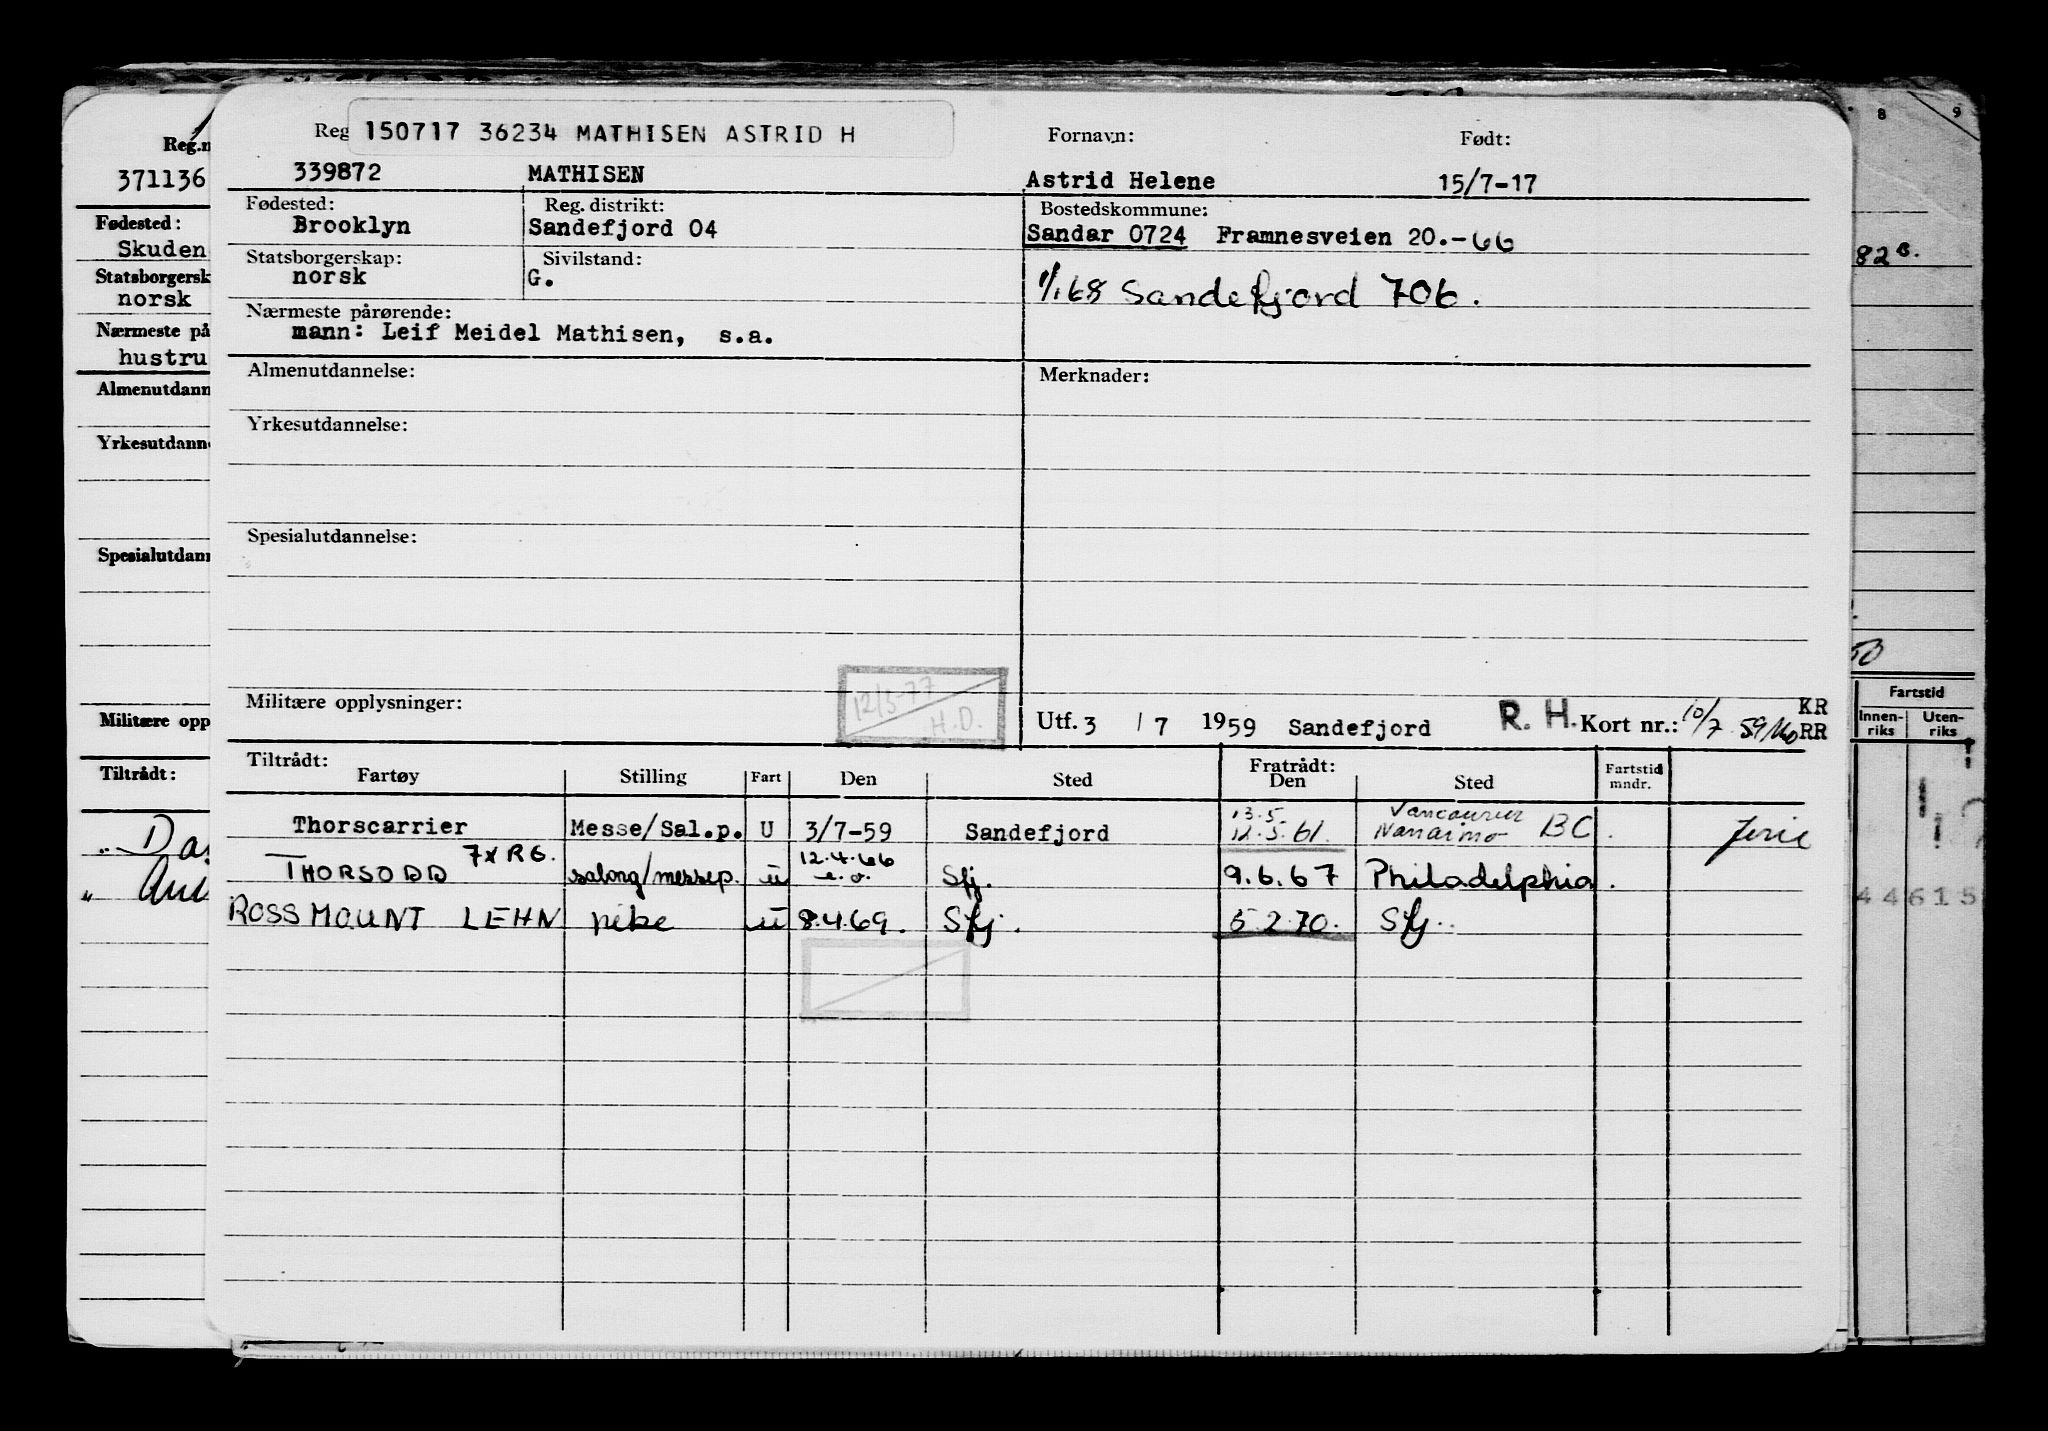 Reg 150717 36234 MATHISEN ASTRID H
Fornavn: Født:
339872 MATHISEN Astrid Helene 15/7-17
Fødested: Reg. distrikt: Bostedskommune:
Brooklyn Sandefjord 04 Sandar 0724 Framnesveien 20.-66
Statsborgerskap: Sivilstand:
norsk G.
1/1.68 Sandefjord 706.
Nærmeste pårørende:
mann: Leif Meidel Mathisen, s.a.
Almenutdannelse: Merknader:
Yrkesutdannelse:
Spesialutdannelse:
12/5-77
H.D.
Militære opplysninger:
Utf. 3 / 7 1959 Sandefjord R. H. Kort nr.: 10/7 59 KR
RR
Tiltrådt: Fratrådt:
Fartøy Stilling Fart Den Sted Den Sted Fartstid mndr.
13.5. Vancouver
Thorscarrier Messe/Sal.p. U 3/7-59 Sandefjord 12.5.61. Nanaimo BC. Ferie
7XR6. 12.4.66
THORSODD salong/messep. u e.o. Sfj. 9.6.67 Philadelphia.
ROSS MOUNT LEHN pike u 8.4.69. Sfj. 5.2.70. Sfj.
Reg.n
371136
Fødested:
Skuden
Statsborgersk
norsk
Nærmeste på
hustru
Almenutdann
Yrkesutdann
Spesialutdann
Militære opp
Tiltrådt:
8 9
82
Fartstid
Innen-riks Uten-riks
44615